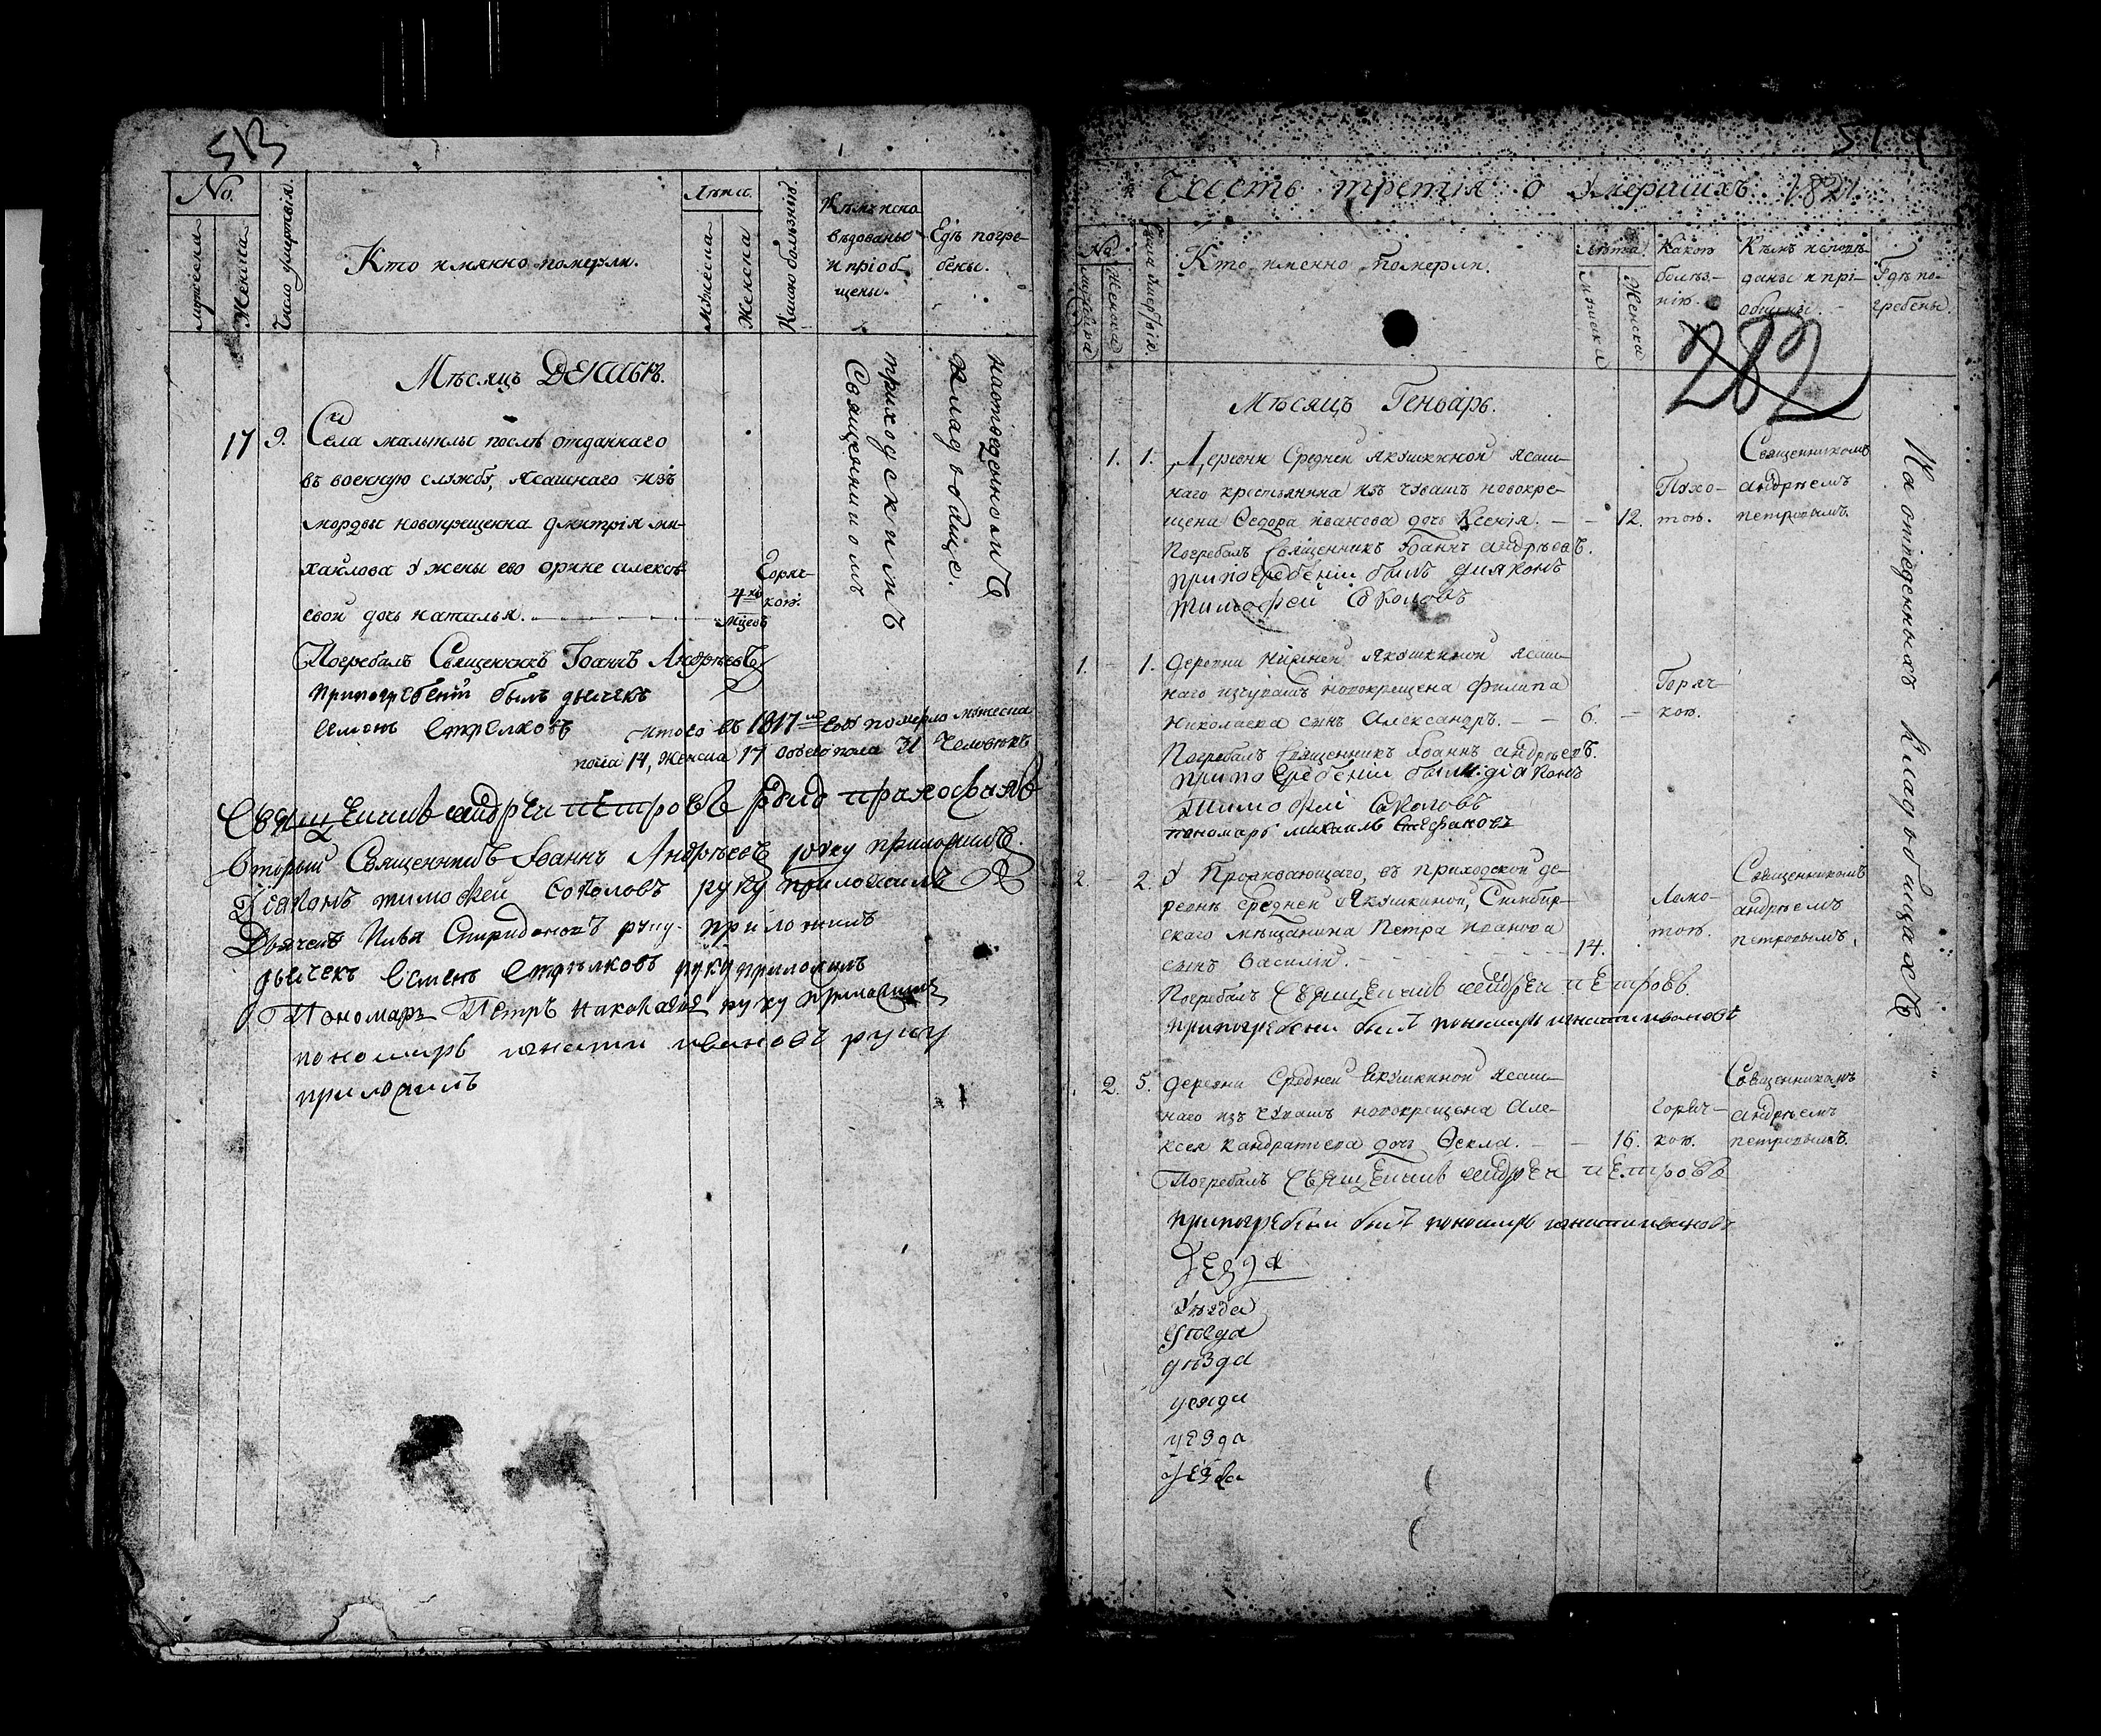 513
No.
мужеска
Женска
Число умертвія.
Кто имянно померли.
Лѣта.
Мужеска
Женска
Какою болѣзнію
Кѣмъ испо
вѣдованы
и пріоб
щены.
Гдѣ погре-
бены.
Мѣсяцъ ДЕКАБРЬ.
17 9. Села послѣ отданнаго
въ военную службу, ясашнаго изъ
мордвы новокрещена Дмитрія ми-
хайлова у жены его орине алексѣ
евой дочь наталья.
4хъ
мцовъ
Горяч-
кою.
приходскимъ
Священникомъ
наотведенномъ
кладьбище.
Погребалъ Священникъ Іоаннъ Андрѣевъ
припогребеніи былъ дьячекъ
Семенъ Стрелковъ
итого въ 1817мъ году померло мужеска
пола 14, женска 17 обоего пола 31 человѣкъ
Священникъ андрей петровъ руку приложилъ
Вторый Священникъ Іоаннъ Андрѣевъ руку приложилъ.
Діаконъ тимофей Соколовъ руку приложилъ
Дьячекъ Спиридоновъ руку приложилъ
дьячекъ Семенъ Стрѣлковъ руку приложилъ
Пономарь Петръ николаевъ руку приложилъ
пономарь игнатий ивановъ руку
приложилъ
514
Часть третія о умершихъ 1821
No.
мужеска
Женска
Числа умертвія.
Кто именно померли.
Лѣта.
мужеска
Женска
Какою
болѣз-
нію.
Кѣмъ исповѣ-
даны и прі-
общены.
Гдѣ по-
гребены.
282
Мѣсяцъ Геньварь.
1. 1. Деревни Средней Якушкиной ясаш-
наго крестьянина изъ чувашъ новокре-
щена Ѳедора иванова дочь Ксенія. 12.
Похо-
тою.
Священникомъ
андрѣемъ
петровымъ.
На отведенныхъ кладьбищахъ
Погребалъ священникъ Іоаннъ андрѣевъ.
припогребеніи былъ діяконъ
тимофей Соколовъ
1. 1. Деревни Нижней Якушкиной ясаш-
наго изчувашъ новокрещена Филипа
Николаева сынъ Александръ. 6.
Горяч-
кою.
Погребалъ священникъ Іоаннъ андрѣевъ.
припогребеніи были: діаконъ
тимофей Соколовъ
пономарь михаилъ Стефановъ
2. 2. У Проживающаго, въ приходской де-
ревнѣ средней Якушкиной, Симбир-
скаго мѣщанина Петра иванова
сынъ Василій. 14.
Ломо-
тою.
Священникомъ
андрѣемъ
петровымъ.
Погребалъ Священникъ андрей петровъ.
припогребени былъ пономарь игнатий ивановъ
2. 5. Деревни Средней Якушкиной ясаш-
наго изъ чувашъ новокрещена Але-
ксея кандратьева дочь Ѳекла. 16.
горяч-
кою.
Священникомъ
андрѣемъ
петровымъ.
Погребалъ Священникъ андрей петровъ
припогребени былъ пономарь игнатий ивановъ
уезда
уезда